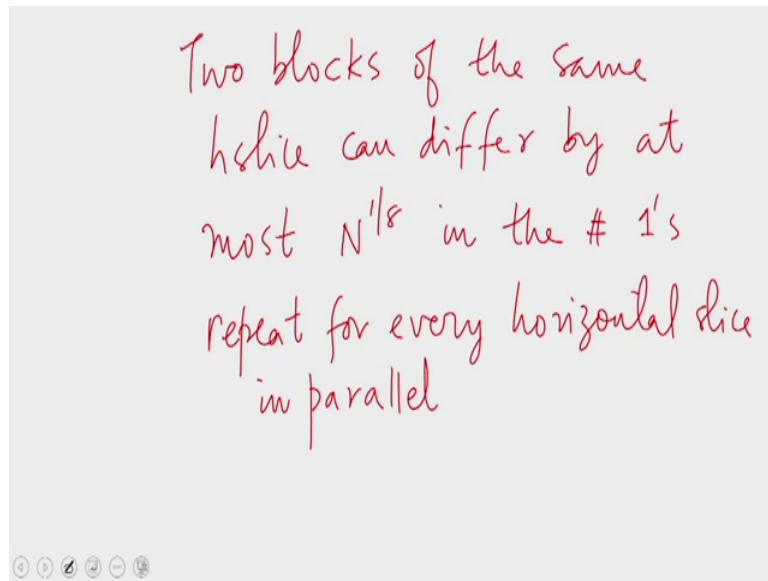 Two blocks of the same
hslice can differ by at
most N^1/8 in the # 1's
repeat for every horizontal slice
in parallel